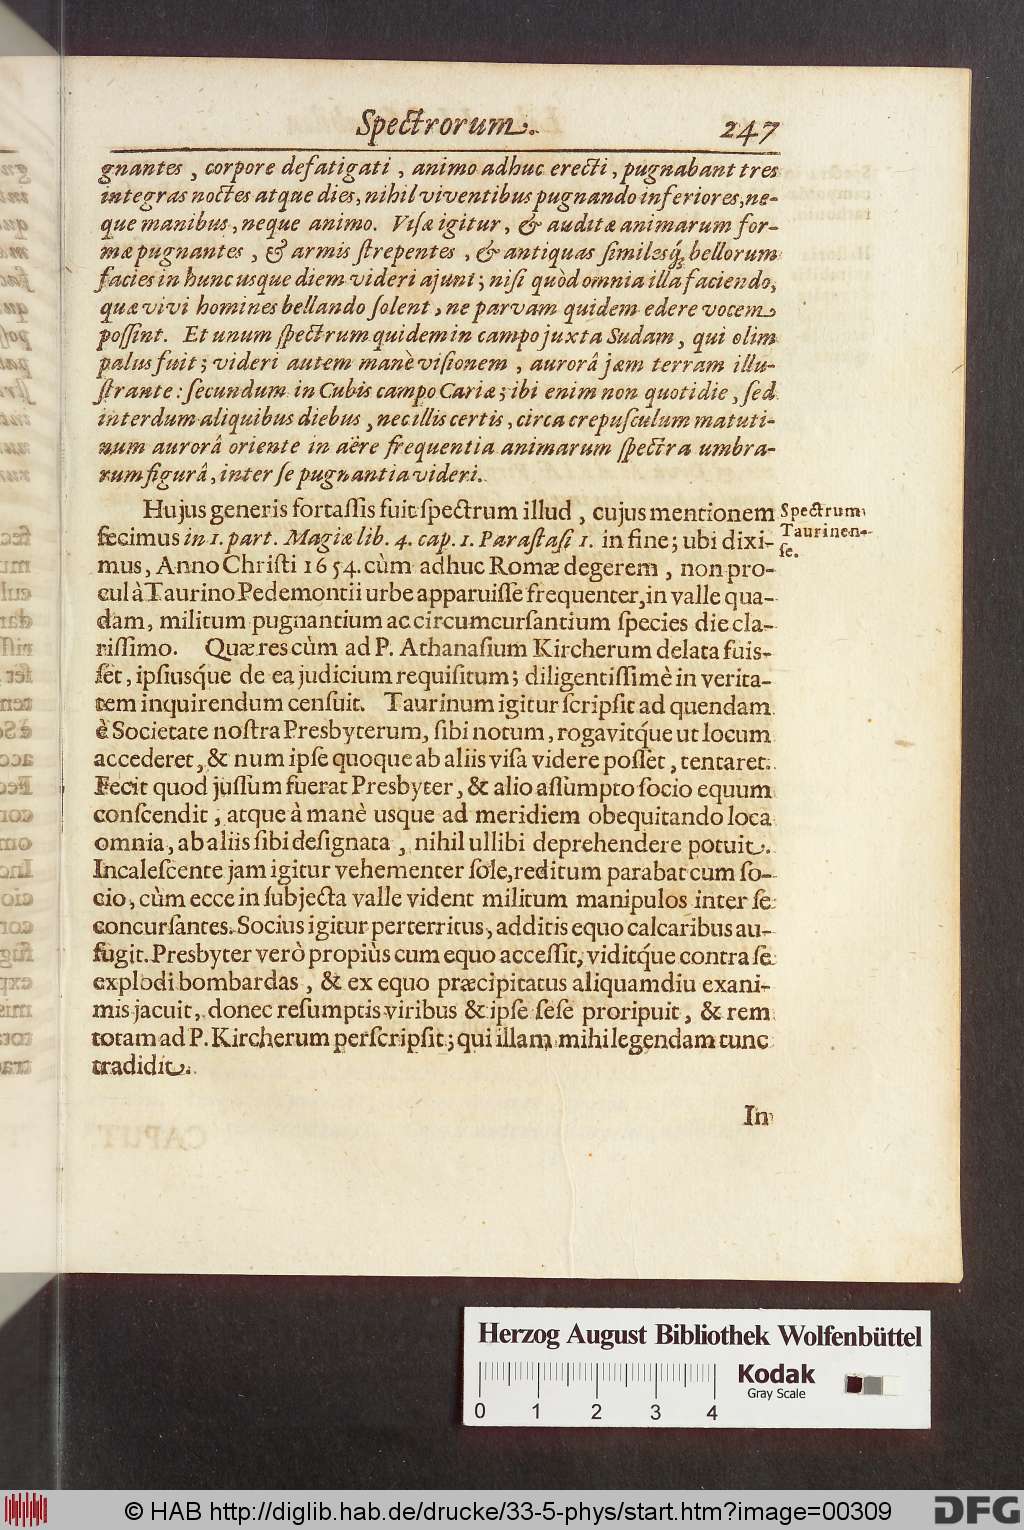 Spectrorum.
247
gnantes, corpore defatigati, animo adhuc erecti, pugnabant tres
integras noctes atque dies, nihil viventibus pugnando inferiores, ne-
que manibus, neque animo. Visæ igitur, & auditæ animarum for-
mæ pugnantes, & armis strepentes, & antiquas similesq́; bellorum
facies in hunc usque diem videri ajunt; nisi quòd omnia illa faciendo,
quæ vivi homines bellando solent, ne parvam quidem edere vocem
possint. Et unum spectrum quidem in campo juxta Sudam, qui olim
palus fuit; videri autem manè visionem, aurorâ jam terram illu-
strante: secundum in Cubis campo Cariæ; ibi enim non quotidie, sed
interdum aliquibus diebus, nec illis certis, circa crepusculum matuti-
num aurorâ oriente in aëre frequentia animarum spectra umbra-
rum figurâ, inter se pugnantia videri.
Hujus generis fortassis fuit spectrum illud, cujus mentionem
Spectrum
fecimus in 1. part. Magiæ lib. 4. cap. 1. Parastasi 1. in fine; ubi dixi-
Taurinen-
se.
mus, Anno Christi 1654. cùm adhuc Romæ degerem, non pro-
cul à Taurino Pedemontii urbe apparuisse frequenter, in valle qua-
dam, militum pugnantium ac circumcursantium species die cla-
rissimo. Quæ res cùm ad P. Athanasium Kircherum delata fuis-
set, ipsiusq́ue de ea judicium requisitum; diligentissimè in verita-
tem inquirendum censuit. Taurinum igitur scripsit ad quendam
è Societate nostra Presbyterum, sibi notum, rogavitq́ue ut locum
accederet, & num ipse quoque ab aliis visa videre posset, tentaret.
Fecit quod jussum fuerat Presbyter, & alio assumpto socio equum
conscendit, atque à manè usque ad meridiem obequitando loca
omnia, ab aliis sibi designata, nihil ullibi deprehendere potuit.
Incalescente jam igitur vehementer sole, reditum parabat cum so-
cio, cùm ecce in subjecta valle vident militum manipulos inter se
concursantes. Socius igitur perterritus, additis equo calcaribus au-
fugit. Presbyter verò propiùs cum equo accessit, viditq́ue contra se
explodi bombardas, & ex equo præcipitatus aliquamdiu exani-
mis jacuit, donec resumptis viribus & ipse sese proripuit, & rem
totam ad P. Kircherum perscripsit; qui illam mihi legendam tunc
tradidit.
In
Herzog August Bibliothek Wolfenbüttel
Kodak
Gray Scale
0 1 2 3 4
© HAB http://diglib.hab.de/drucke/33-5-phys/start.htm?image=00309
DFG